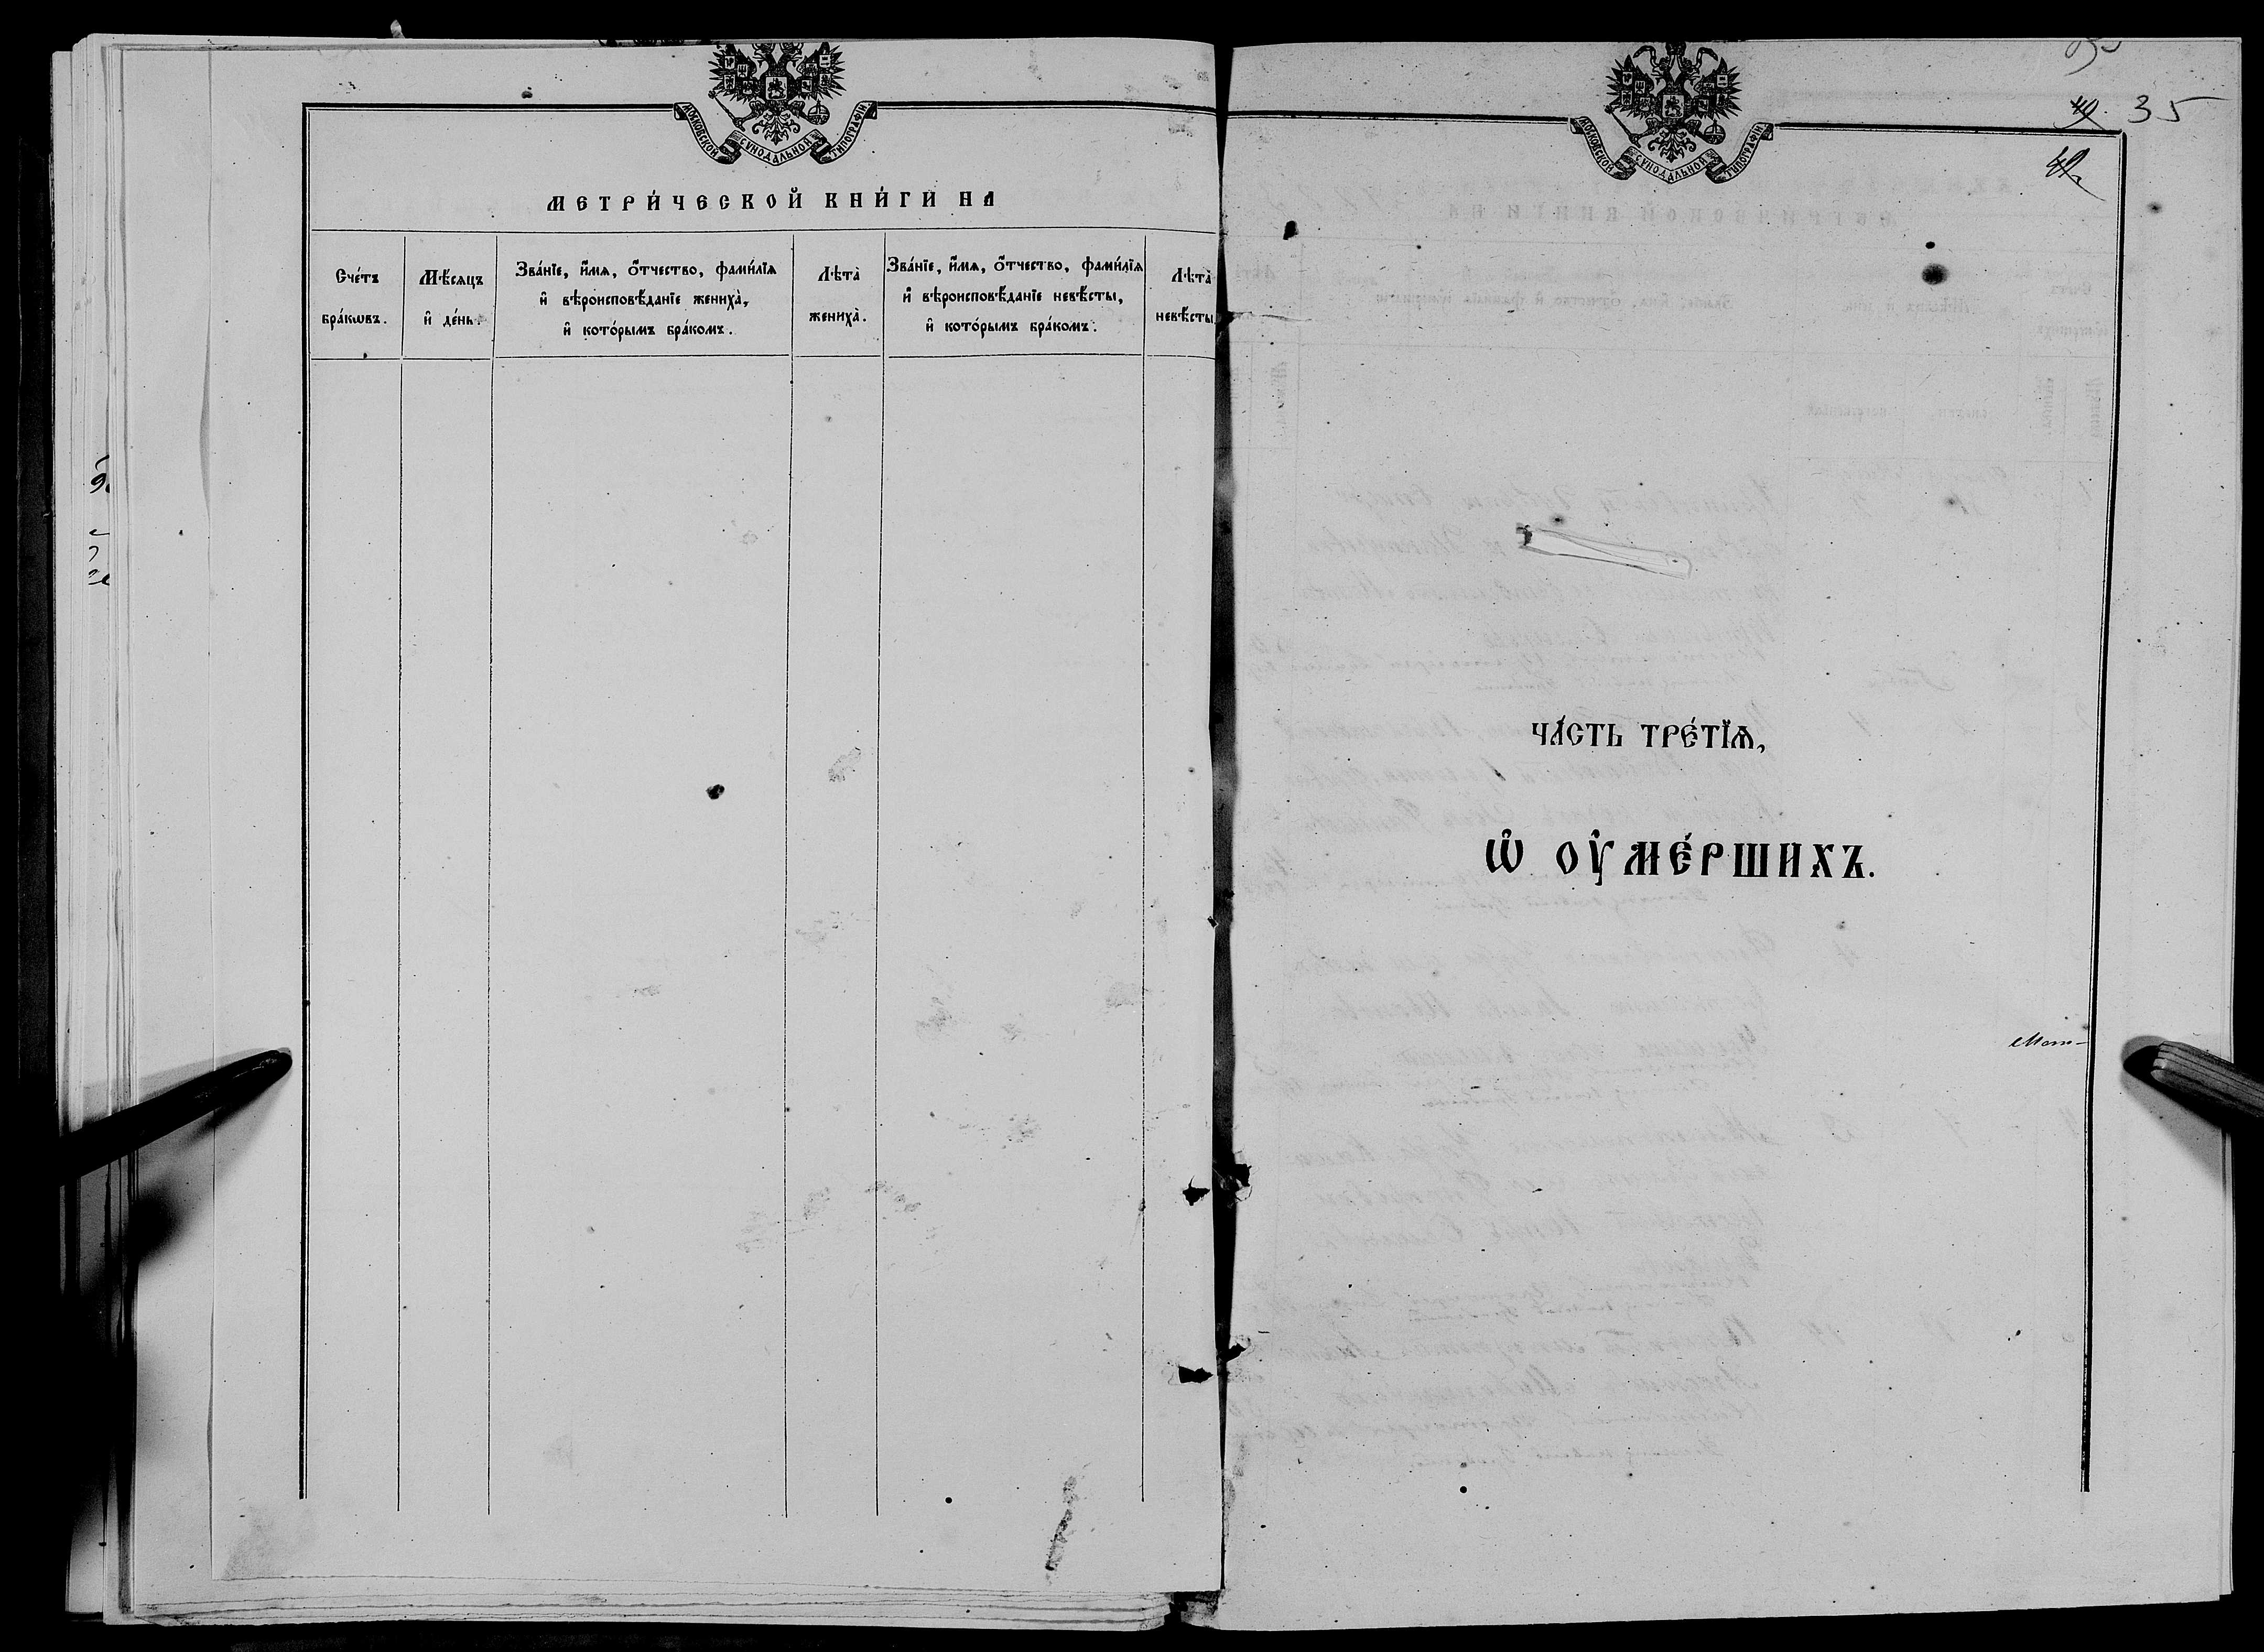 МОСКОВСКОЙ СѴНОДАЛЬНОЙ ТИПОГРАФІИ
МЕТРИ́ЧЕСКОЙ КНИ́ГИ НА
Сче́тъ
бра́кωвъ.
Мѣ́сѧцъ
и҆ де́нь.
Зва́нїе, и҆́мѧ, ѻ҆́тчество, фамѝлїѧ
и҆ вѣроисповѣ́данїе женихà,
и҆ кото́рымъ бра́комъ.
Лѣ́та
женихà.
Зва́нїе, и҆́мѧ, ѻ҆́тчество, фамѝлїѧ
и҆ вѣроисповѣ́данїе невѣ́сты,
и҆ кото́рымъ бра́комъ.
Лѣ́та
невѣ́сты
МОСКОВСКОЙ СѴНОДАЛЬНОЙ ТИПОГРАФІИ
35
ЧА́СТЬ ТРЕ́ТЇѦ,
Ѡ҆ ОУ҆МЕ́РШИХЪ.